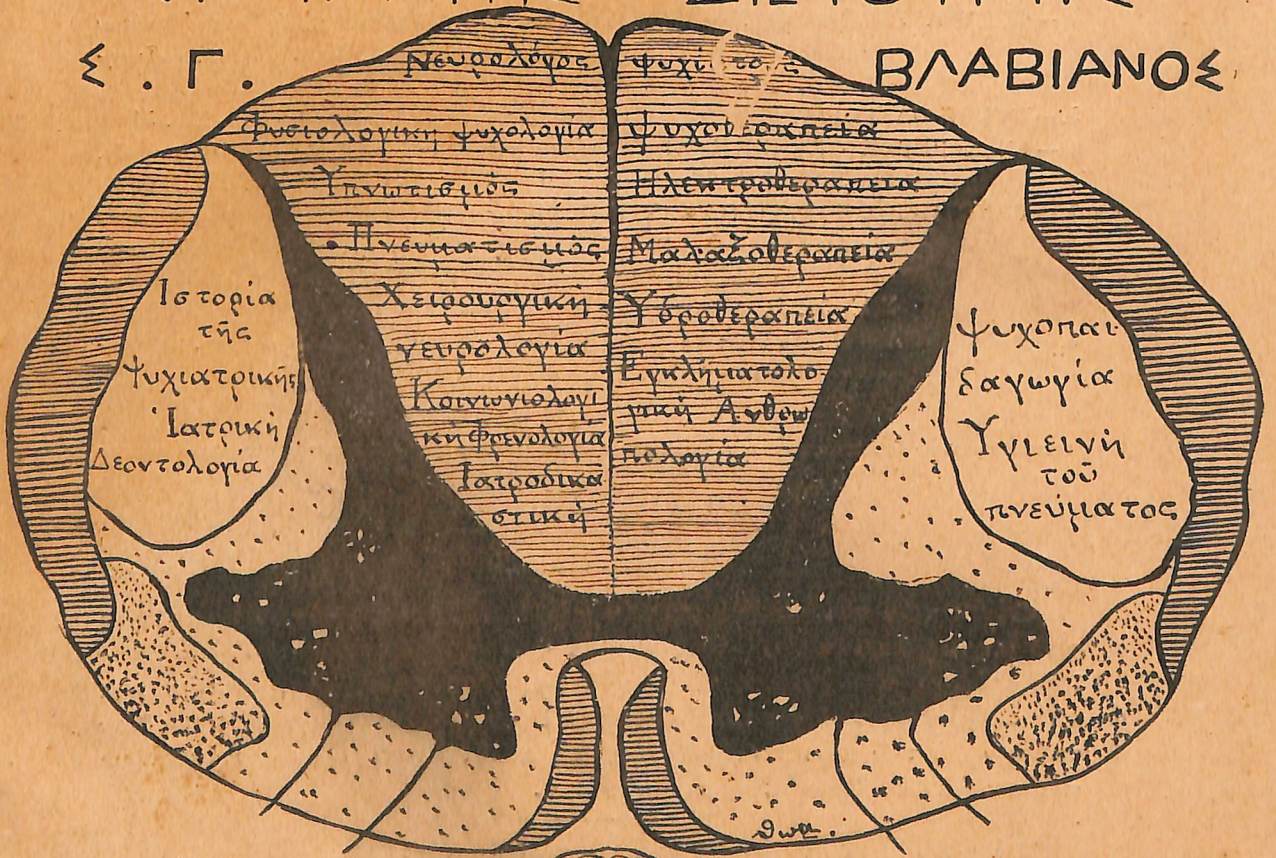 Σ. Γ. ΒΛΑΒΙΑΝΟΣ
Νευρολόγος
Φυσιολογικη ψυχολογία
Υπνωτισμός
Πνευματισμός
Χειρουργική
νευρολογία
Κοινωνιολογι
κή Φρενολογία
Ιατροδικα
στική
Ψυχοθεραπεία
Ηλεκτροθεραπεία
Μαλαξοθεραπεία
Υδροθεραπεία
Εγκληματολο
γική Ανθρω
πολογία
Ιστορία
τῆς
Ψυχιατρικῆς
Ἰατρική
Δεοντολογία
Ψυχοπαι-
δαγωγία
Υγιεινὴ
τοῦ
πνεύματος